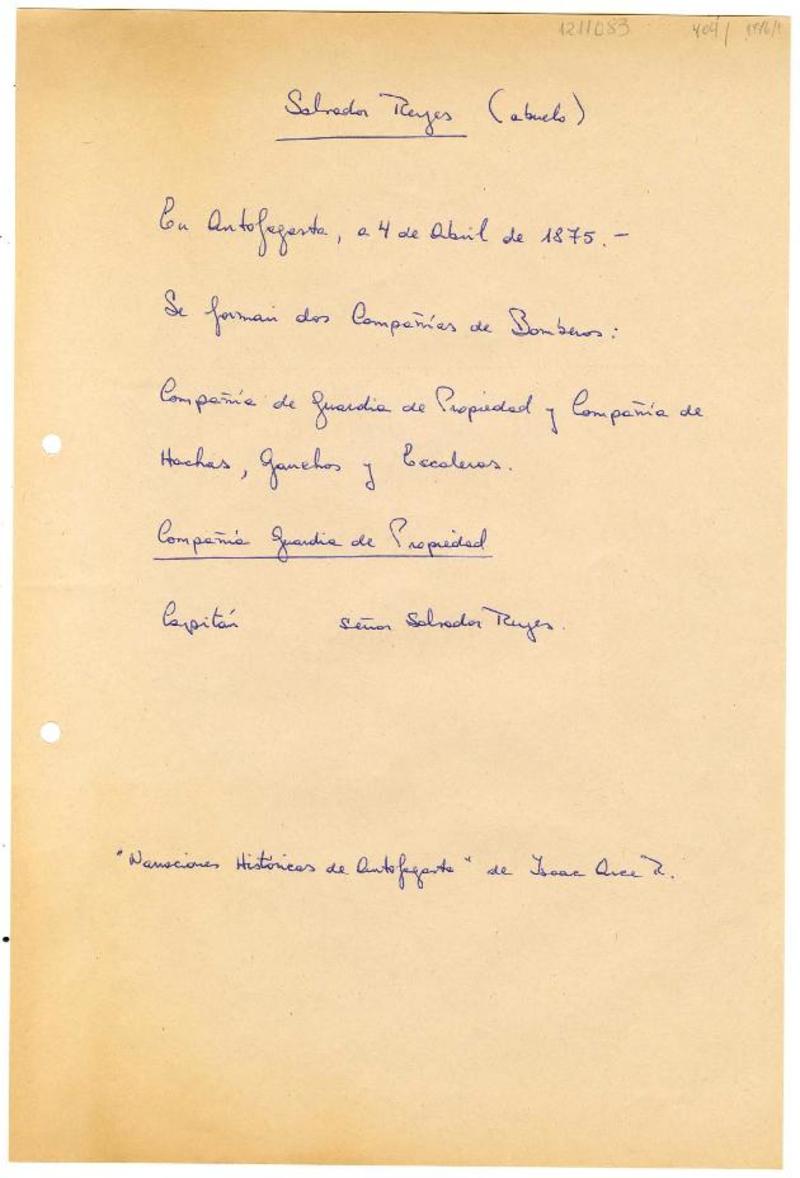 1211083 404/
Salvador Reyes (abuelo)
En Antofagasta, a 4 de Abril de 1875.-
Se forman dos Compañías de Bomberos:
Compañía de Guardia de Propiedad y Compañía de
Hachas, Ganchos y Escaleras.
Compañía Guardia de Propiedad
Capitán señor Salvador Reyes.
"Narraciones Históricas de Antofagasta" de Isaac Arce R.